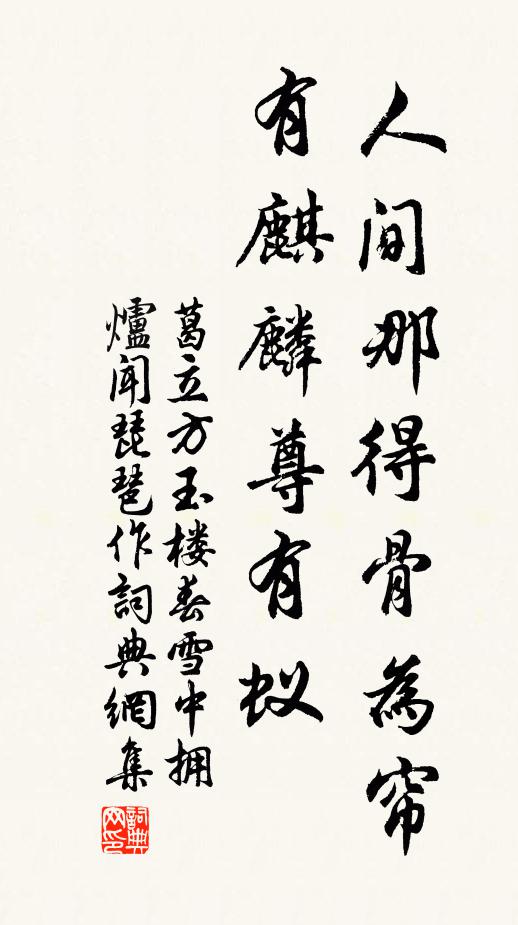 人间那得骨為帘
有麒麟尊有蚁
葛立方玉楼春雪中拥
爐闻琵琶作詞典網集
詞典网印